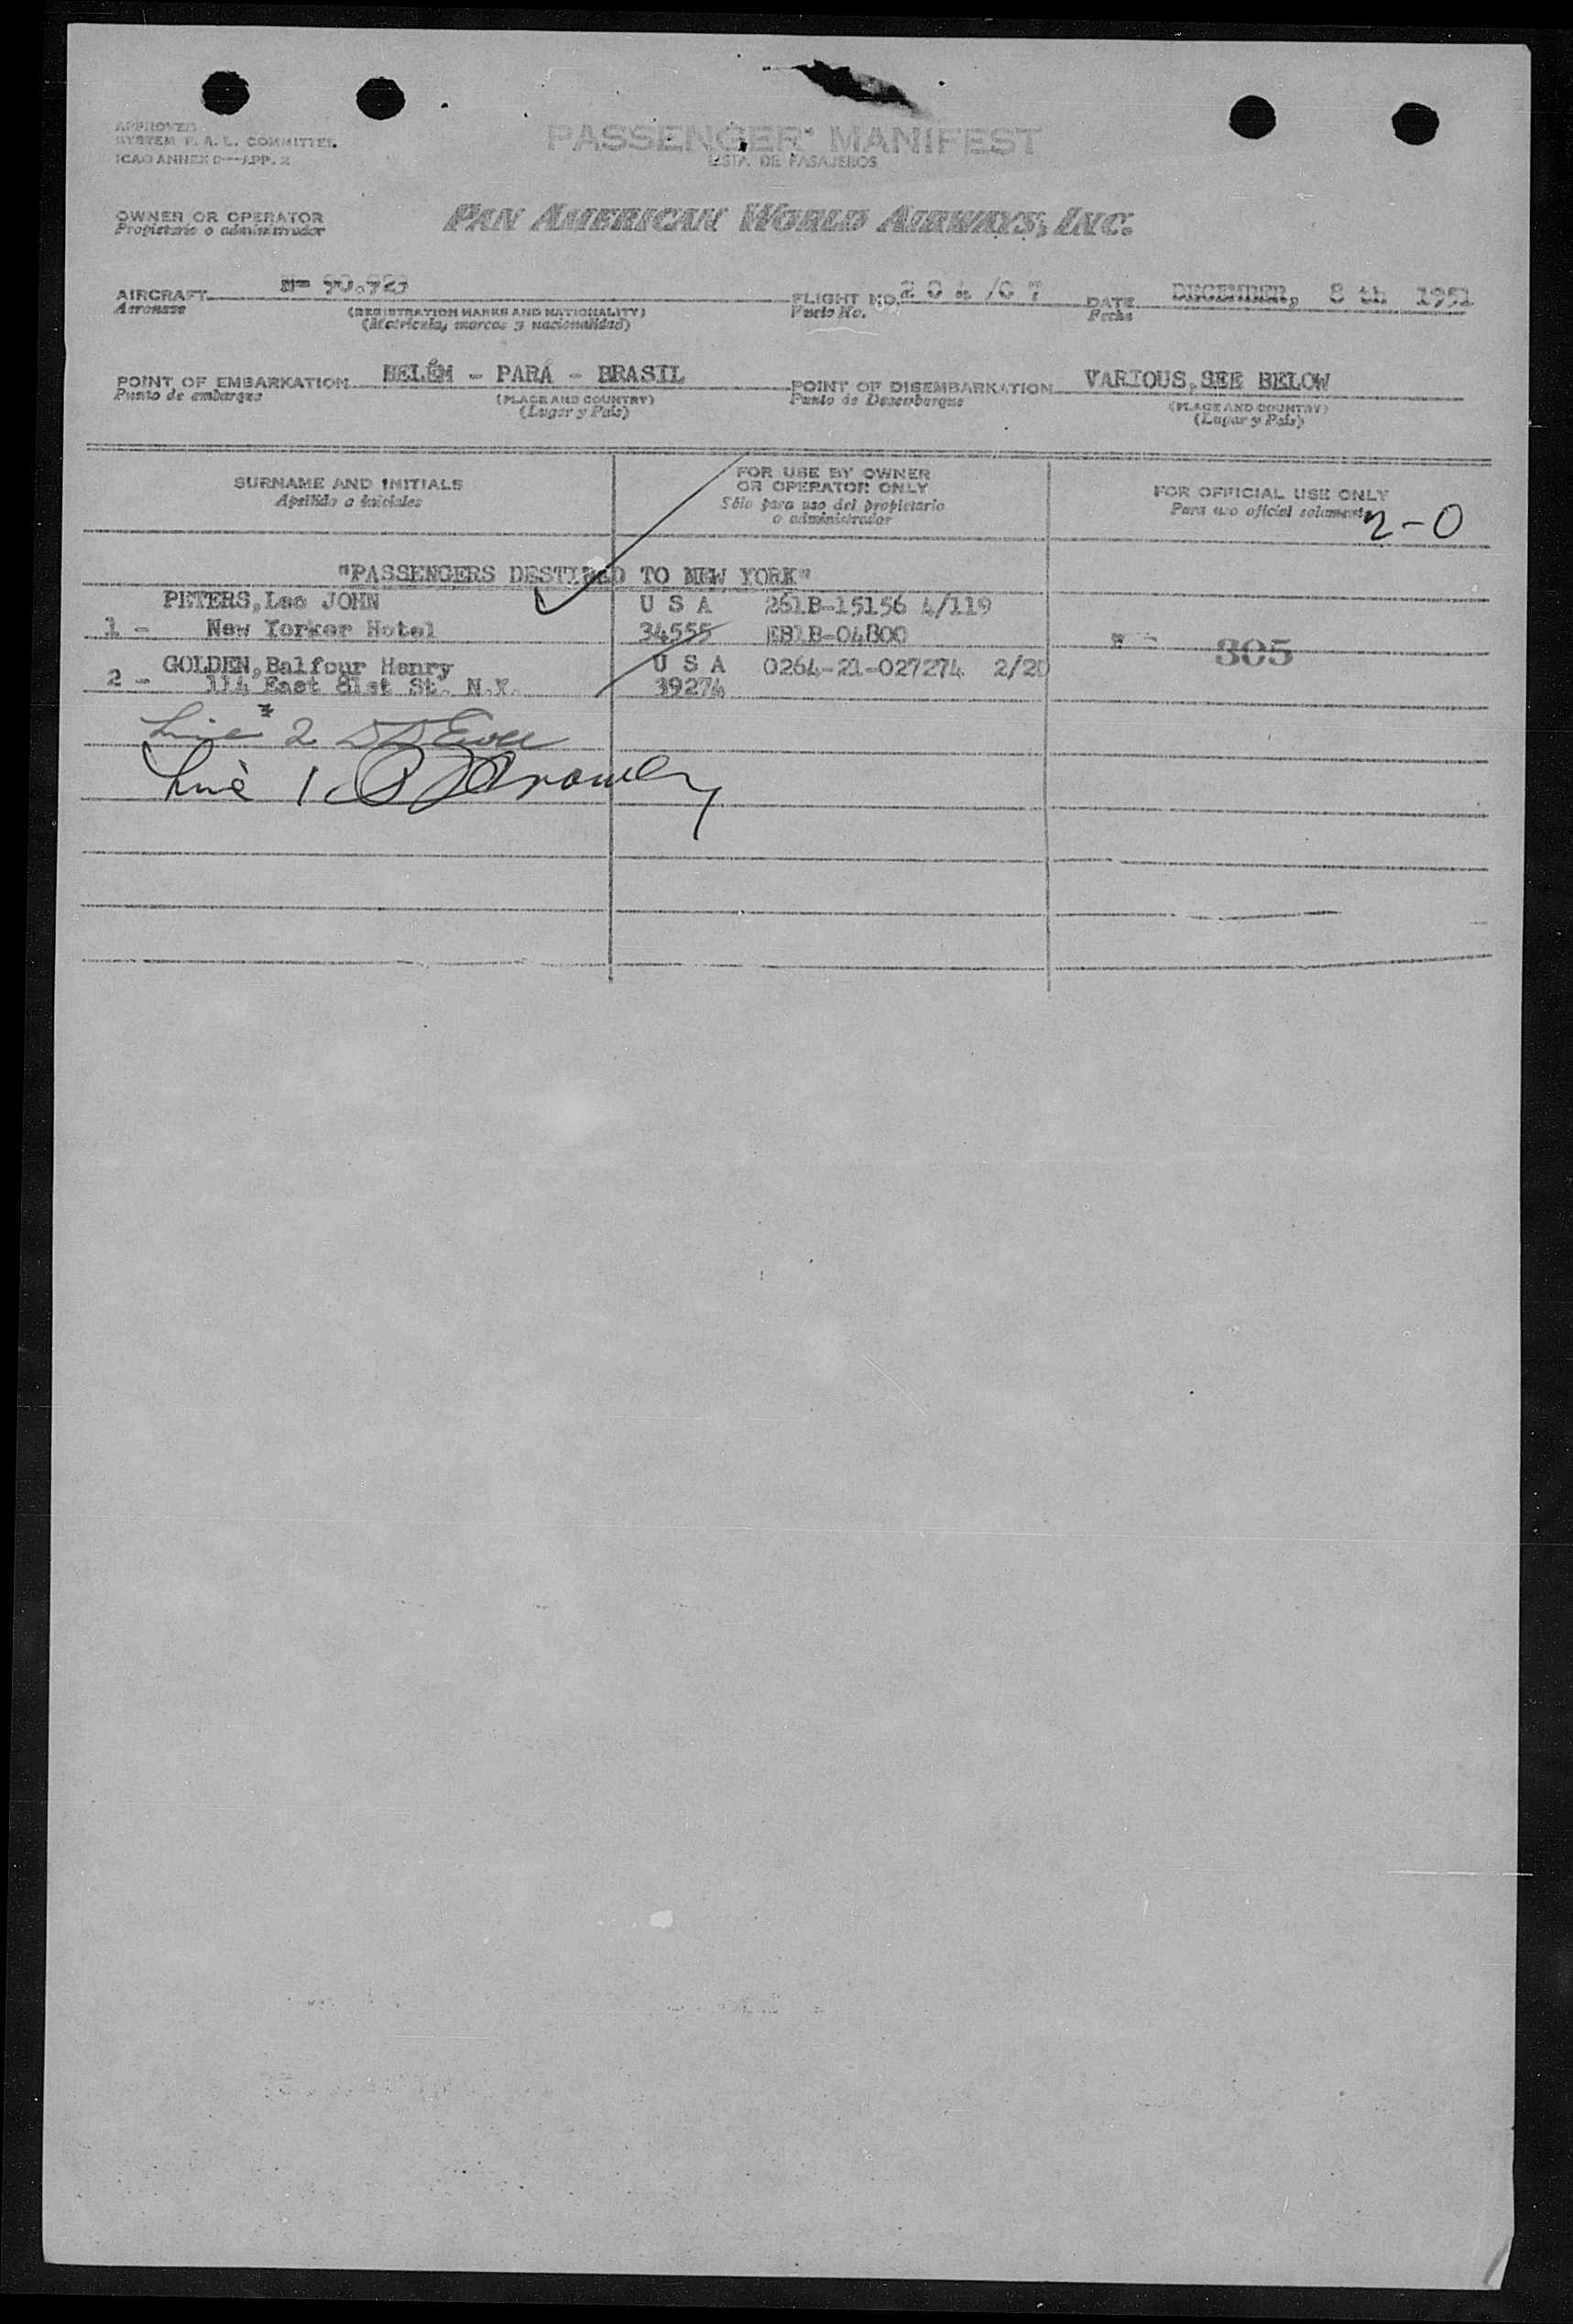 APPROVED
SYSTEM F. A. L. COMMITTEE
ICAO ANNEX 9—APP. 2
PASSENGER MANIFEST
LISTA DE PASAJEROS
OWNER OR OPERATOR
Propietario o administrador
PAN AMERICAN WORLD AIRWAYS, INC.
AIRCRAFT N- 90.923
Aeronave
(REGISTRATION MARKS AND NATIONALITY)
(Matrícula, marcas y nacionalidad)
FLIGHT NO. 2 0 4 /0 7
Vuelo No.
DATE DECEMBER, 8 th 1951
Fecha
POINT OF EMBARKATION BELÉM - PARÁ - BRASIL
Punto de embarque
(PLACE AND COUNTRY)
(Lugar y País)
POINT OF DISEMBARKATION VARIOUS,SEE BELOW
Punto de Desembarque
(PLACE AND COUNTRY)
(Lugar y País)
SURNAME AND INITIALS
Apellido e iniciales
FOR USE BY OWNER
OR OPERATOR ONLY
Sólo para uso del propietario
o administrador
FOR OFFICIAL USE ONLY
Para uso oficial solamente
2-0
"PASSENGERS DESTINED TO NEW YORK"
PETERS,Leo JOHN U S A 261B-15156 4/119
1 - New Yorker Hotel 34555 EB1B-04B00
305
GOLDEN,Balfour Henry U S A 0264-21-027274 2/20
2 - 114 East 81st St. N.Y. 39274
Line # 2
Line 1